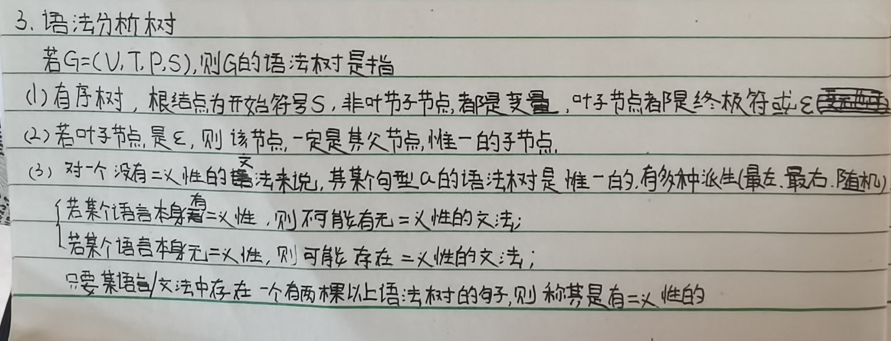 3. 语法分析树
若G=(V,T,P,S),则G的语法树是指
(1)有序树，根结点为开始符号S，非叶节子节点,都是变量，叶子节点都是终极符或ε
(2)若叶子节点是ε,则该节点一定是其父节点惟一的子节点.
(3) 对一个没有二义性的文法来说,其某个句型α的语法树是惟一的,有多种派生(最左.最右.随机)
若某个语言本身有二义性，则不可能有无二义性的文法;
若某个语言本身无二义性,则可能存在二义性的文法;
只要某语言/文法中存在一个有两棵以上语法树的句子,则称其是有二义性的